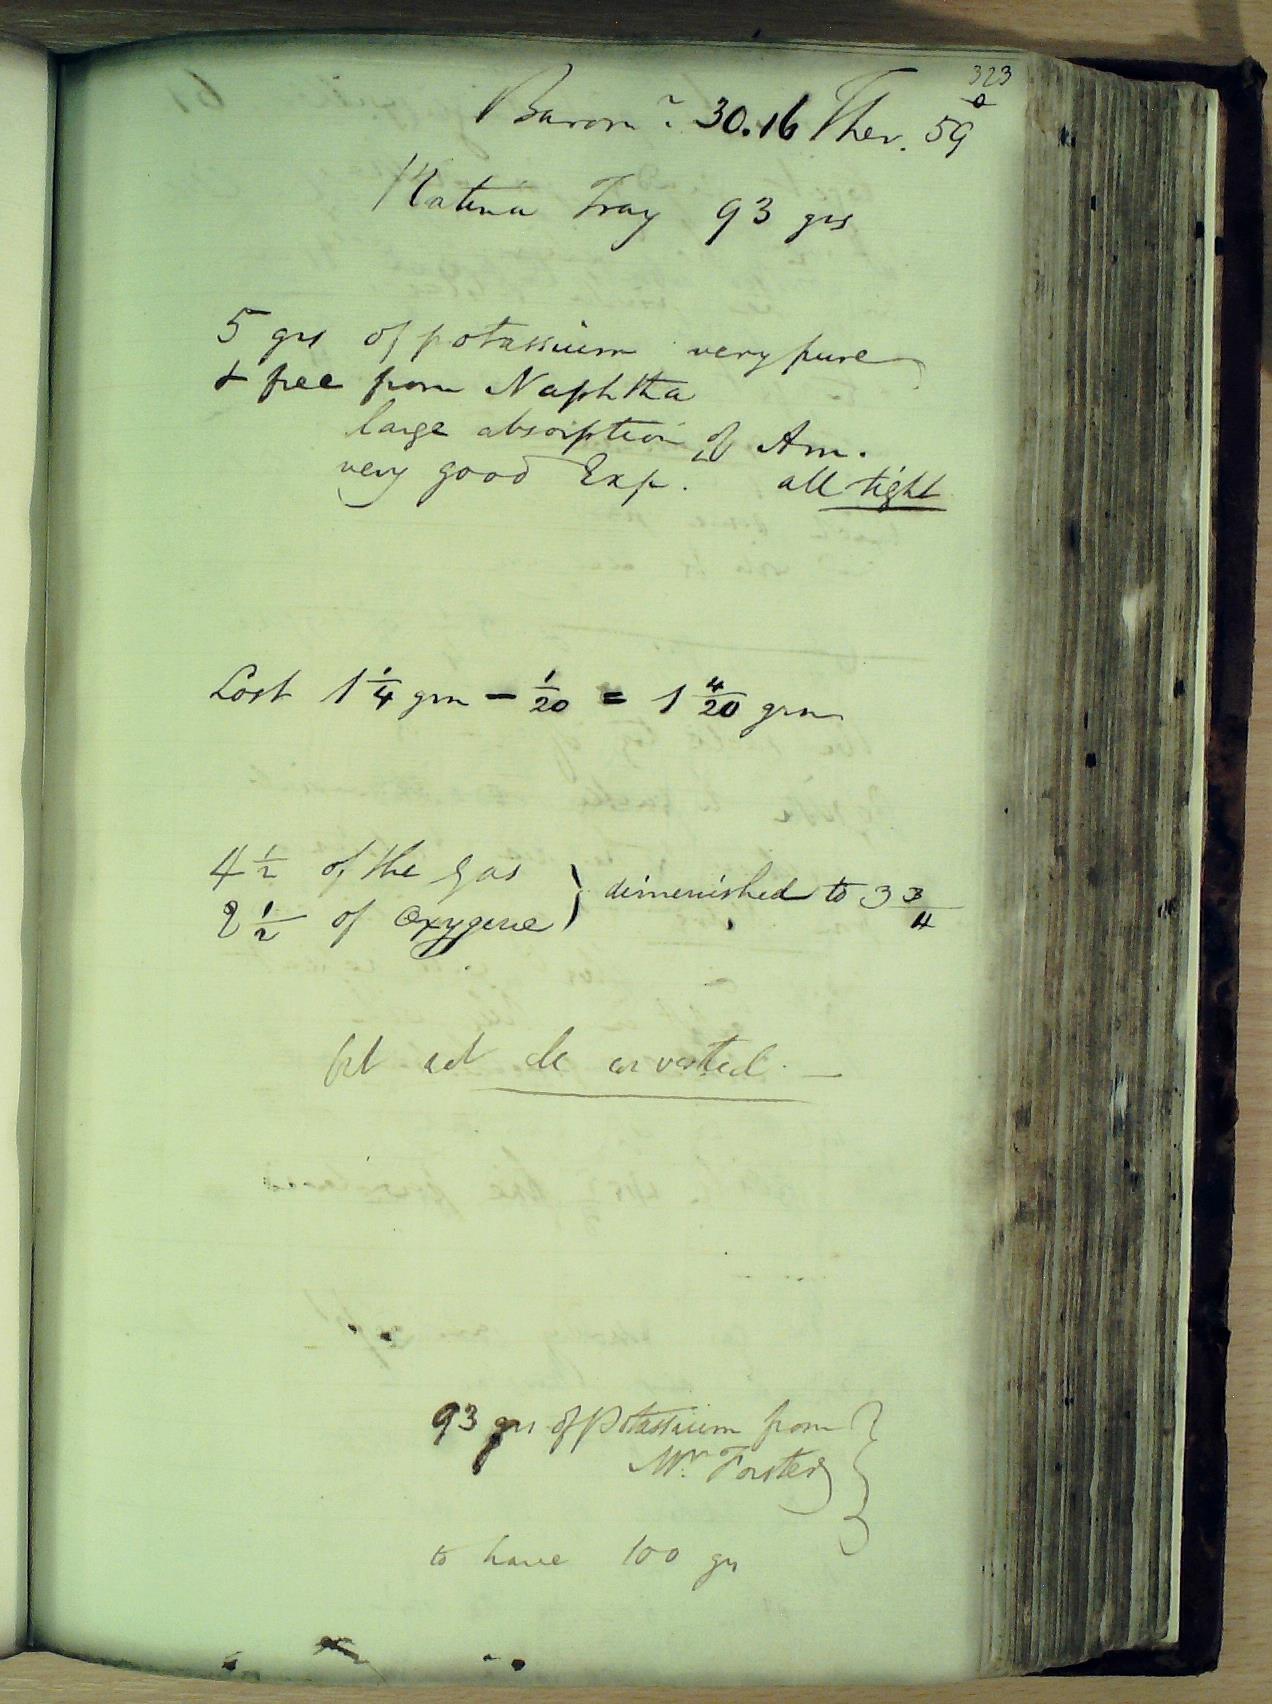 323
Barom.r 30.16 Ther. 59°
Platina Tray 93 grs
5 grs of potassium very pure
& free from Naphtha
large absorption of Am.
very good Exp. all tight
Lost 1 1/4 grn - 1/20 = 1 4/20 grn
4 1/2 of the gas } diminished to 3 3/4
2 1/2 of oxygene
93 grs of Potassium from
Mr. Forster
to have 100 grs